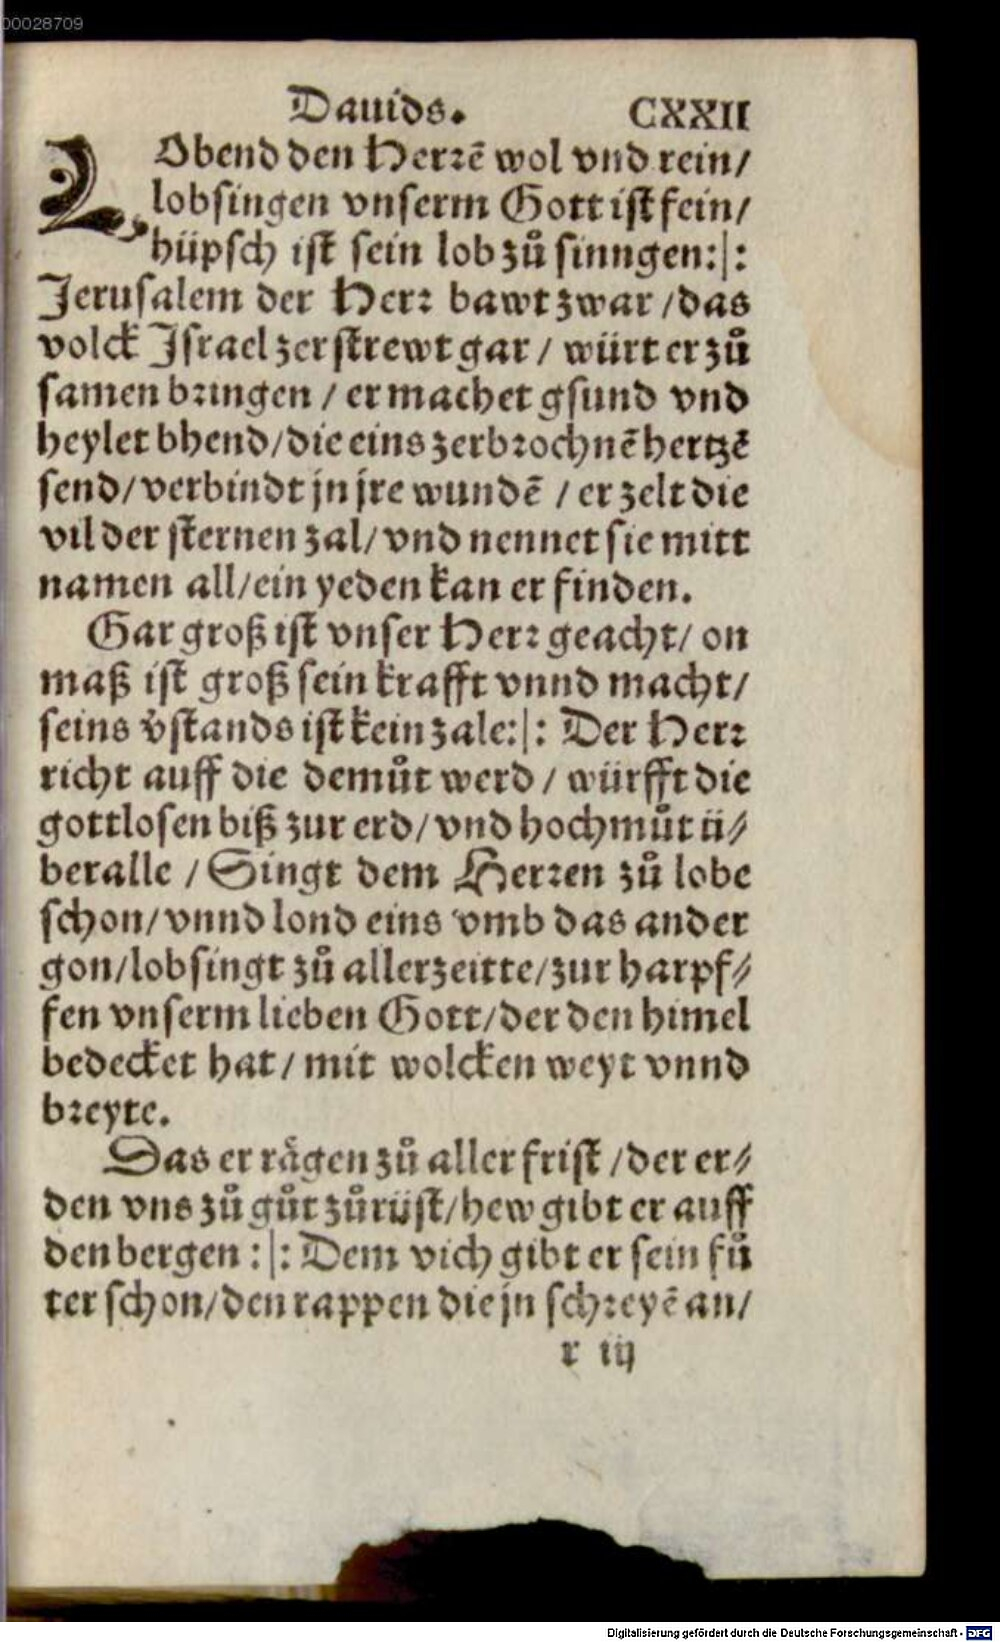 00028709
Dauids. CXXII
LObend den Herrē wol vnd rein/
lobsingen vnserm Gott ist fein/
hüpsch ist sein lob zů sinngen:|:
Jerusalem der Herr bawt zwar /das
volck Jsrael zerstrewt gar / würt er zů
samen bringen / er machet gsund vnd
heylet bhend/die eins zerbrochnē hertzē
send/verbindt jn jre wundē / er zelt die
vil der sternen zal/vnd nennet sie mitt
namen all/ein yeden kan er finden.
Gar groß ist vnser Herr geacht/ on
maß ist groß sein krafft vnnd macht/
seins v̊stands ist kein zale:|: Der Herr
richt auff die demůt werd / würfft die
gottlosen biß zur erd/vnd hochmůt ü⸗
beralle /Singt dem Herren zů lobe
schon/vnnd lond eins vmb das ander
gon/lobsingt zů aller zeitte/zur harpf⸗
fen vnserm lieben Gott/der den himel
bedecket hat/mit wolcken weyt vnnd
breyte.
Das er rågen zů aller frist /der er⸗
den vns zů gůt zůrüst/hew gibt er auff
den bergen :|: Dem vich gibt er sein fů
ter schon/den rappen die jn schreyē an/
r iij
Digitalisierung gefördert durch die Deutsche Forschungsgemeinschaft - DFG